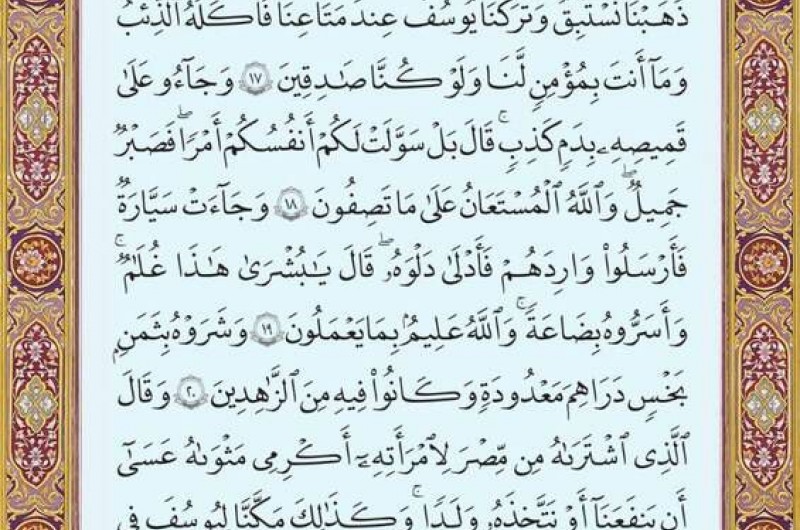 ذَهَبْنَا نَسْتَبِقُ وَتَرَكْنَا يُوسُفَ عِندَ مَتَاعِنَا فَأَكَلَهُ ٱلذِّئْبُ
وَمَآ أَنتَ بِمُؤْمِنٍ لَّنَا وَلَوْ كُنَّا صَادِقِينَ ١٧ وَجَآءُو عَلَىٰ
قَمِيصِهِۦ بِدَمٍ كَذِبٍ ۚ قَالَ بَلْ سَوَّلَتْ لَكُمْ أَنفُسُكُمْ أَمْرًا ۖ فَصَبْرٌ
جَمِيلٌ ۖ وَٱللَّهُ ٱلْمُسْتَعَانُ عَلَىٰ مَا تَصِفُونَ ١٨ وَجَآءَتْ سَيَّارَةٌ
فَأَرْسَلُوا۟ وَارِدَهُمْ فَأَدْلَىٰ دَلْوَهُۥ ۖ قَالَ يَٰبُشْرَىٰ هَٰذَا غُلَٰمٌ ۚ
وَأَسَرُّوهُ بِضَاعَةً ۚ وَٱللَّهُ عَلِيمٌۢ بِمَا يَعْمَلُونَ ١٩ وَشَرَوْهُ بِثَمَنٍۭ
بَخْسٍ دَرَاهِمَ مَعْدُودَةٍ وَكَانُوا۟ فِيهِ مِنَ ٱلزَّٰهِدِينَ ٢٠ وَقَالَ
ٱلَّذِى ٱشْتَرَىٰهُ مِن مِّصْرَ لِٱمْرَأَتِهِۦٓ أَكْرِمِى مَثْوَىٰهُ عَسَىٰٓ
أَن يَنفَعَنَآ أَوْ نَتَّخِذَهُۥ وَلَدًا ۚ وَكَذَٰلِكَ مَكَّنَّا لِيُوسُفَ فِى